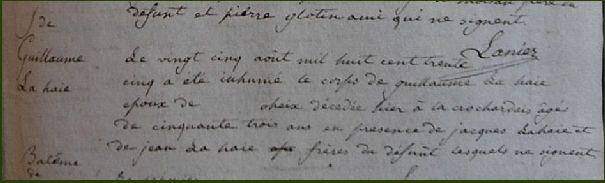 défunt et pierre glotin ami qui ne signent
S de
Guillaume
La haie
Lanier
Le vingt cinq août mil huit cent trente
cinq a été inhumé le corps de guillaume La haie
epoux de cheix décedée hier à la crochardais âgé
de cinquante trois ans en presence de jacques Lahaie et
de jean La haie frères du défunt lesquels ne signent
Batême
de